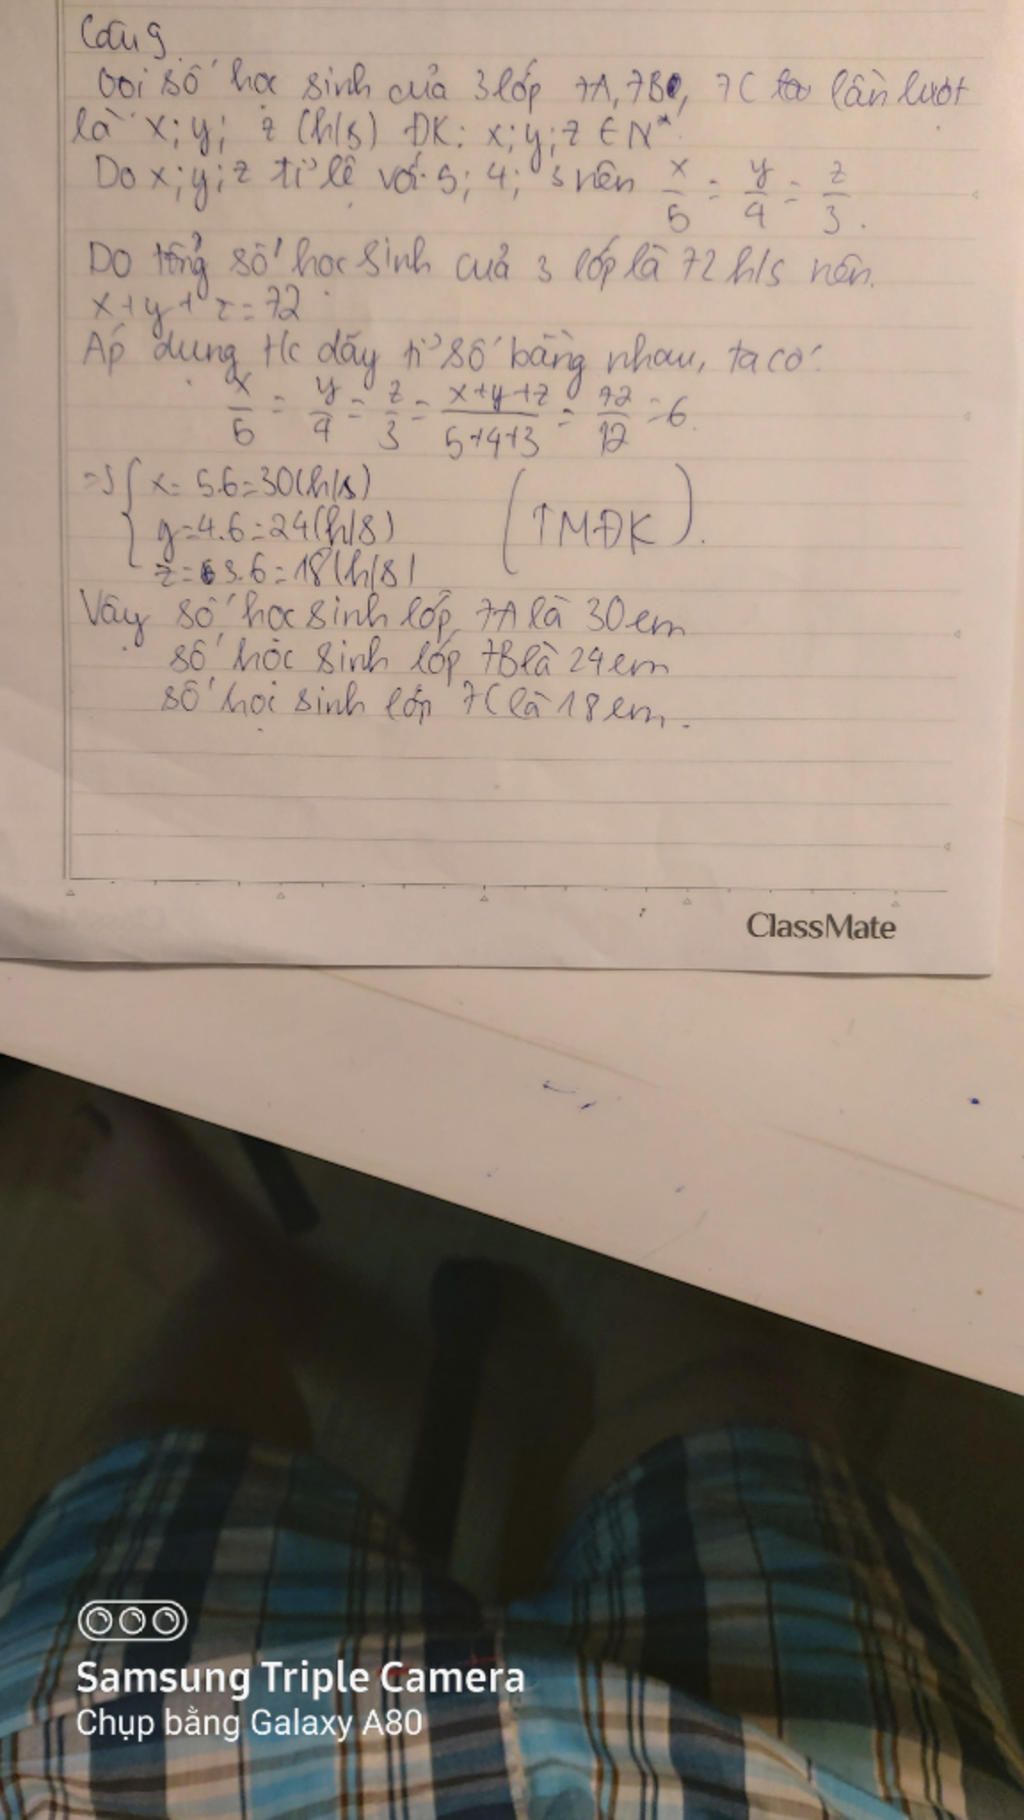 Câu 9
Gọi số học sinh của 3 lớp 7A, 7B, 7C lần lượt
là x; y; z (h/s) ĐK: x; y; z ∈ N*
Do x; y; z tỉ lệ với 5; 4; 3 nên x/5 = y/4 = z/3.
Do tổng số học sinh cuả 3 lớp là 72 h/s nên.
x + y + z = 72
Áp dụng t/c dãy tỉ số bằng nhau, ta có:
x/5 = y/4 = z/3 = x+y+z/5+4+3 = 72/12 = 6.
=> { x = 5.6 = 30 (h/s)
y = 4.6 = 24 (h/s) (TMĐK).
z = 3.6 = 18 (h/s)
Vậy số học sinh lớp 7A là 30 em
số học sinh lớp 7B là 24 em
số học sinh lớp 7C là 18 em.
ClassMate
Samsung Triple Camera
Chụp bằng Galaxy A80